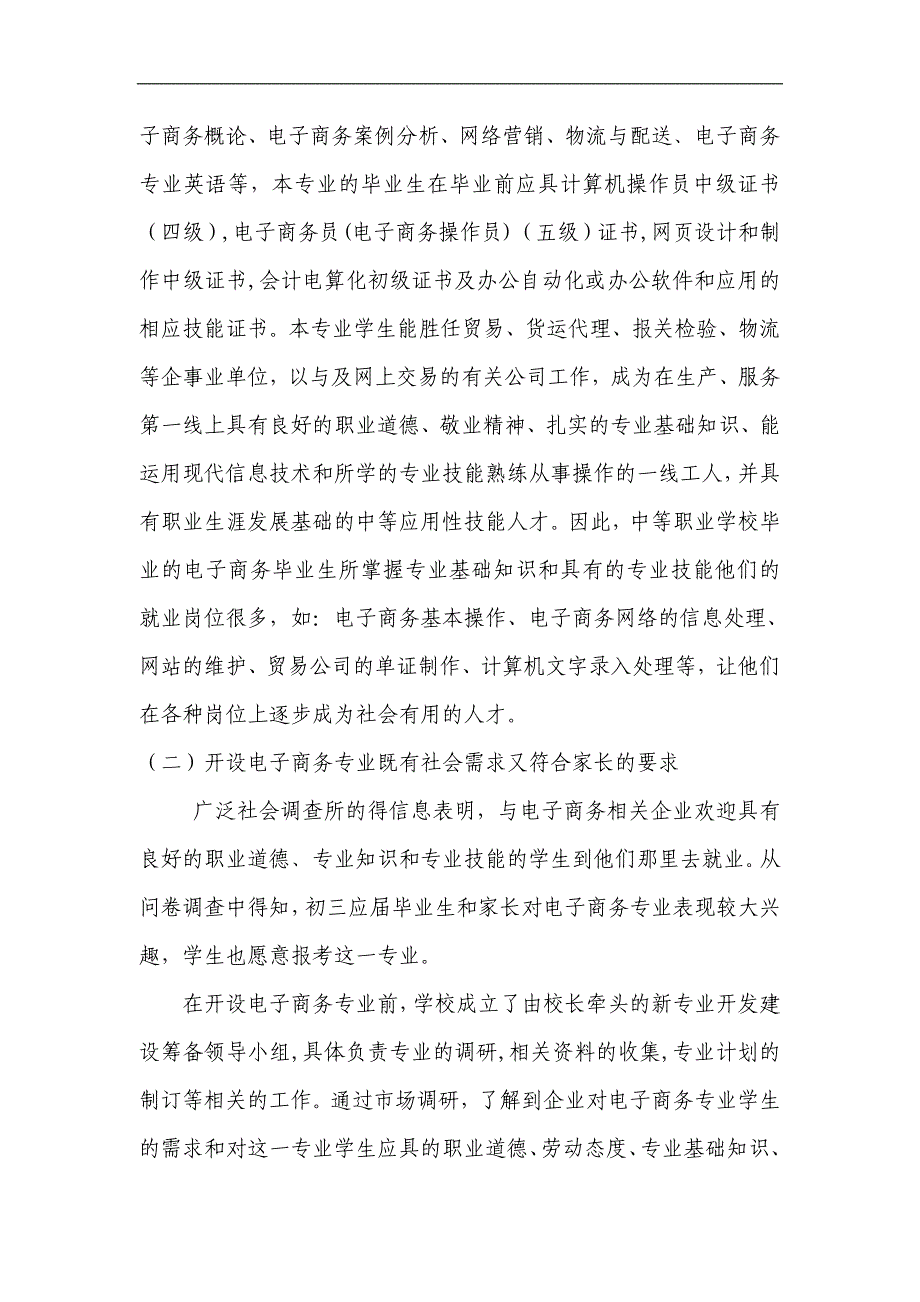 子商务概论、电子商务案例分析、网络营销、物流与配送、电子商务
专业英语等，本专业的毕业生在毕业前应具计算机操作员中级证书
（四级）,电子商务员(电子商务操作员)（五级）证书,网页设计和制
作中级证书,会计电算化初级证书及办公自动化或办公软件和应用的
相应技能证书。本专业学生能胜任贸易、货运代理、报关检验、物流
等企事业单位，以与及网上交易的有关公司工作，成为在生产、服务
第一线上具有良好的职业道德、敬业精神、扎实的专业基础知识、能
运用现代信息技术和所学的专业技能熟练从事操作的一线工人，并具
有职业生涯发展基础的中等应用性技能人才。因此，中等职业学校毕
业的电子商务毕业生所掌握专业基础知识和具有的专业技能他们的
就业岗位很多，如：电子商务基本操作、电子商务网络的信息处理、
网站的维护、贸易公司的单证制作、计算机文字录入处理等，让他们
在各种岗位上逐步成为社会有用的人才。
（二）开设电子商务专业既有社会需求又符合家长的要求
广泛社会调查所的得信息表明，与电子商务相关企业欢迎具有
良好的职业道德、专业知识和专业技能的学生到他们那里去就业。从
问卷调查中得知，初三应届毕业生和家长对电子商务专业表现较大兴
趣，学生也愿意报考这一专业。
在开设电子商务专业前，学校成立了由校长牵头的新专业开发建
设筹备领导小组,具体负责专业的调研,相关资料的收集,专业计划的
制订等相关的工作。通过市场调研，了解到企业对电子商务专业学生
的需求和对这一专业学生应具的职业道德、劳动态度、专业基础知识、